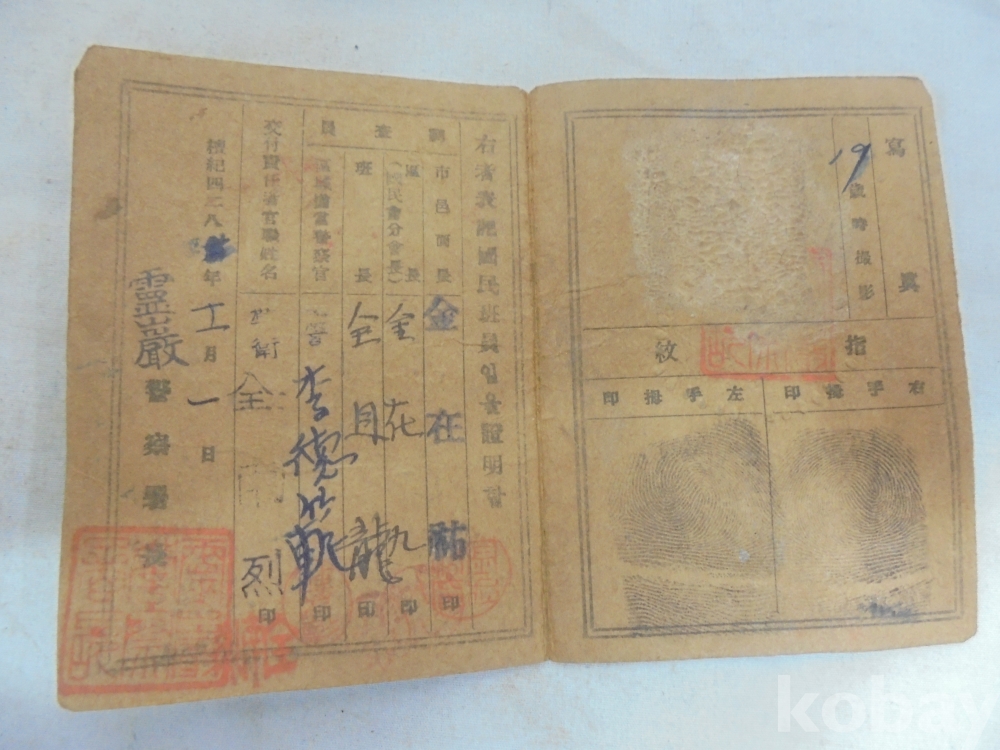 寫眞
19歲時撮影
指紋
右手拇印
左手拇印
右者表記國民班員임을證明함
調查員
市邑面長 金在祐 印
區長(國民會分會長) 金在 印
班長 龍 印
區域擔當警察官 李德 印
交付責任者官職姓名 衛 全 烈 印
檀紀四二八 年 十一月 一日
靈巖警察署長
kobay